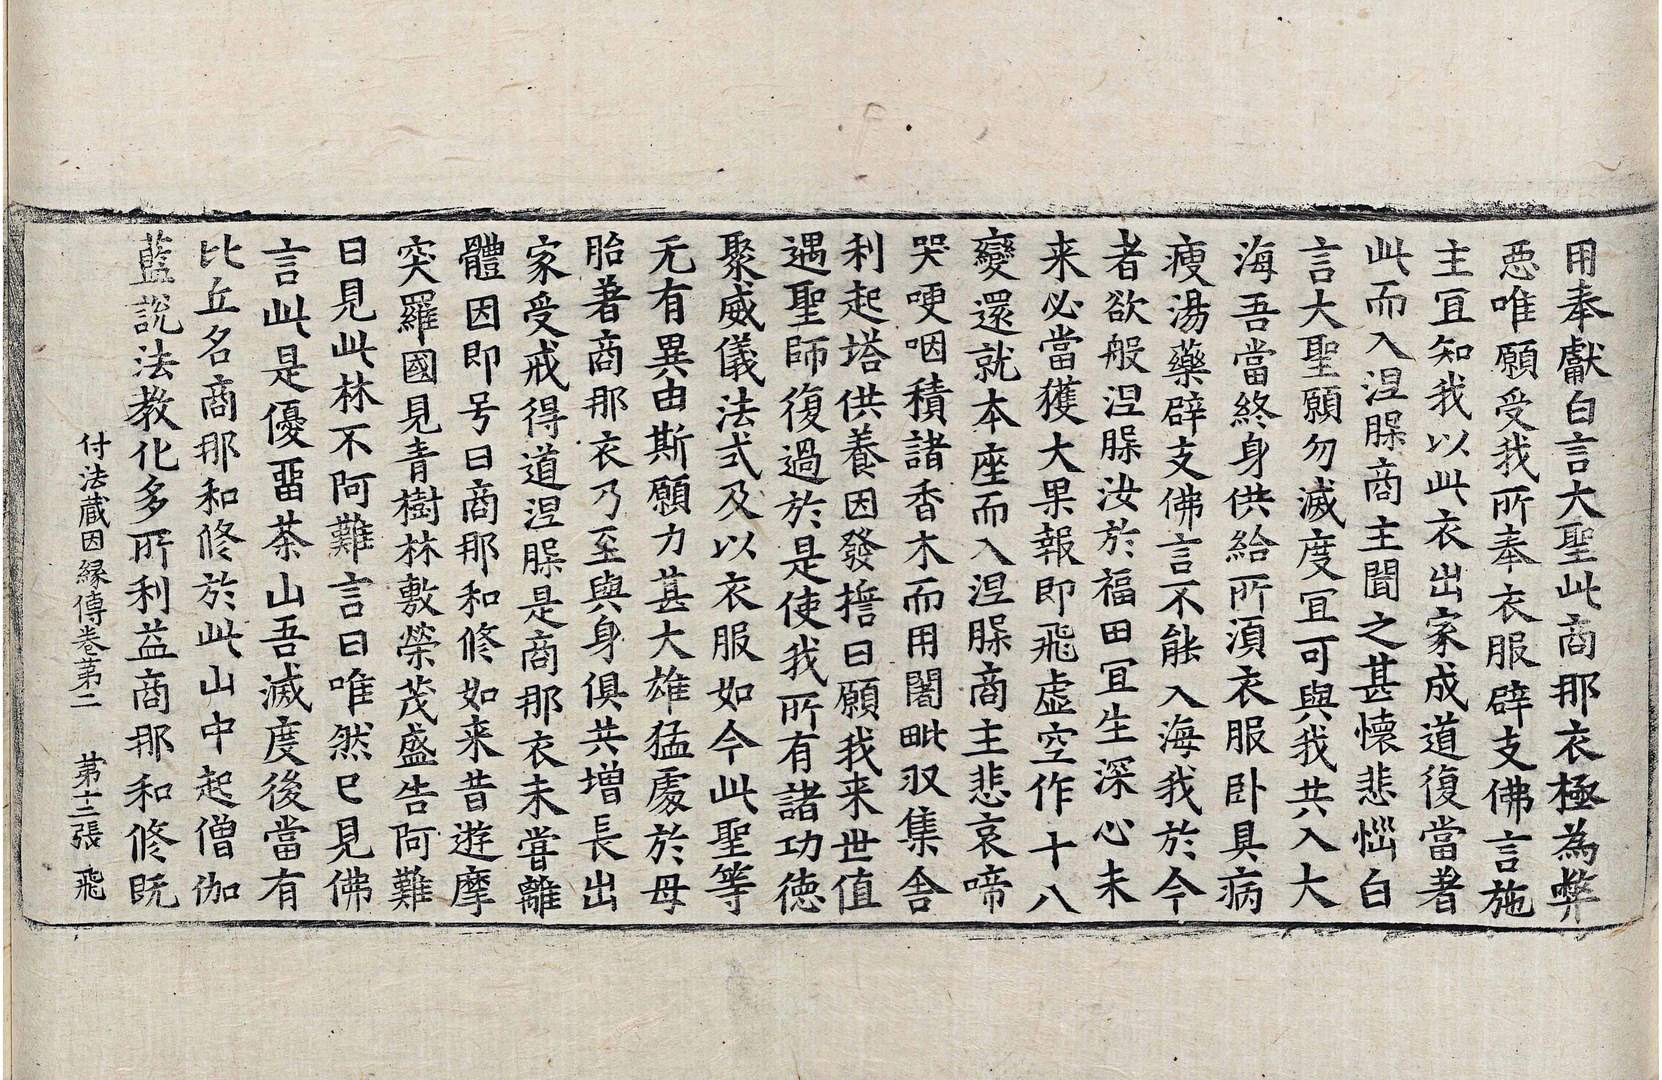 用奉獻白言大聖此商那衣極為弊
惡唯願受我所奉衣服辟支佛言施
主冝知我以此衣出家成道復當著
此而入涅脲商主聞之甚懷悲惱白
言大聖願勿滅度冝可與我共入大
海吾當終身供給所湏衣服卧具病
瘦湯藥辟支佛言不能入海我於今
者欲般涅脲汝於福田冝生深心未
来必當獲大果報即飛虛空作十八
變還就本座而入涅脲商主悲哀啼
哭哽咽積諸香木而用闍毗収集舎
利起塔供養因發誓曰願我来世值
遇聖師復過於是使我所有諸功德
聚威儀法式及以衣服如今此聖等
无有異由斯願力甚大雄猛處於母
胎著商那衣乃至與身俱共增長出
家受戒得道涅脲是商那衣未甞離
體因即号曰商那和修如来昔遊摩
突羅國見青樹林敷榮茂盛告阿難
曰見此林不阿難言曰唯然已見佛
言此是優畱荼山吾滅度後當有
比丘名商那和修於此山中起僧伽
藍說法教化多所利益商那和修既
付法藏因緣傳卷苐二 苐十三張 飛